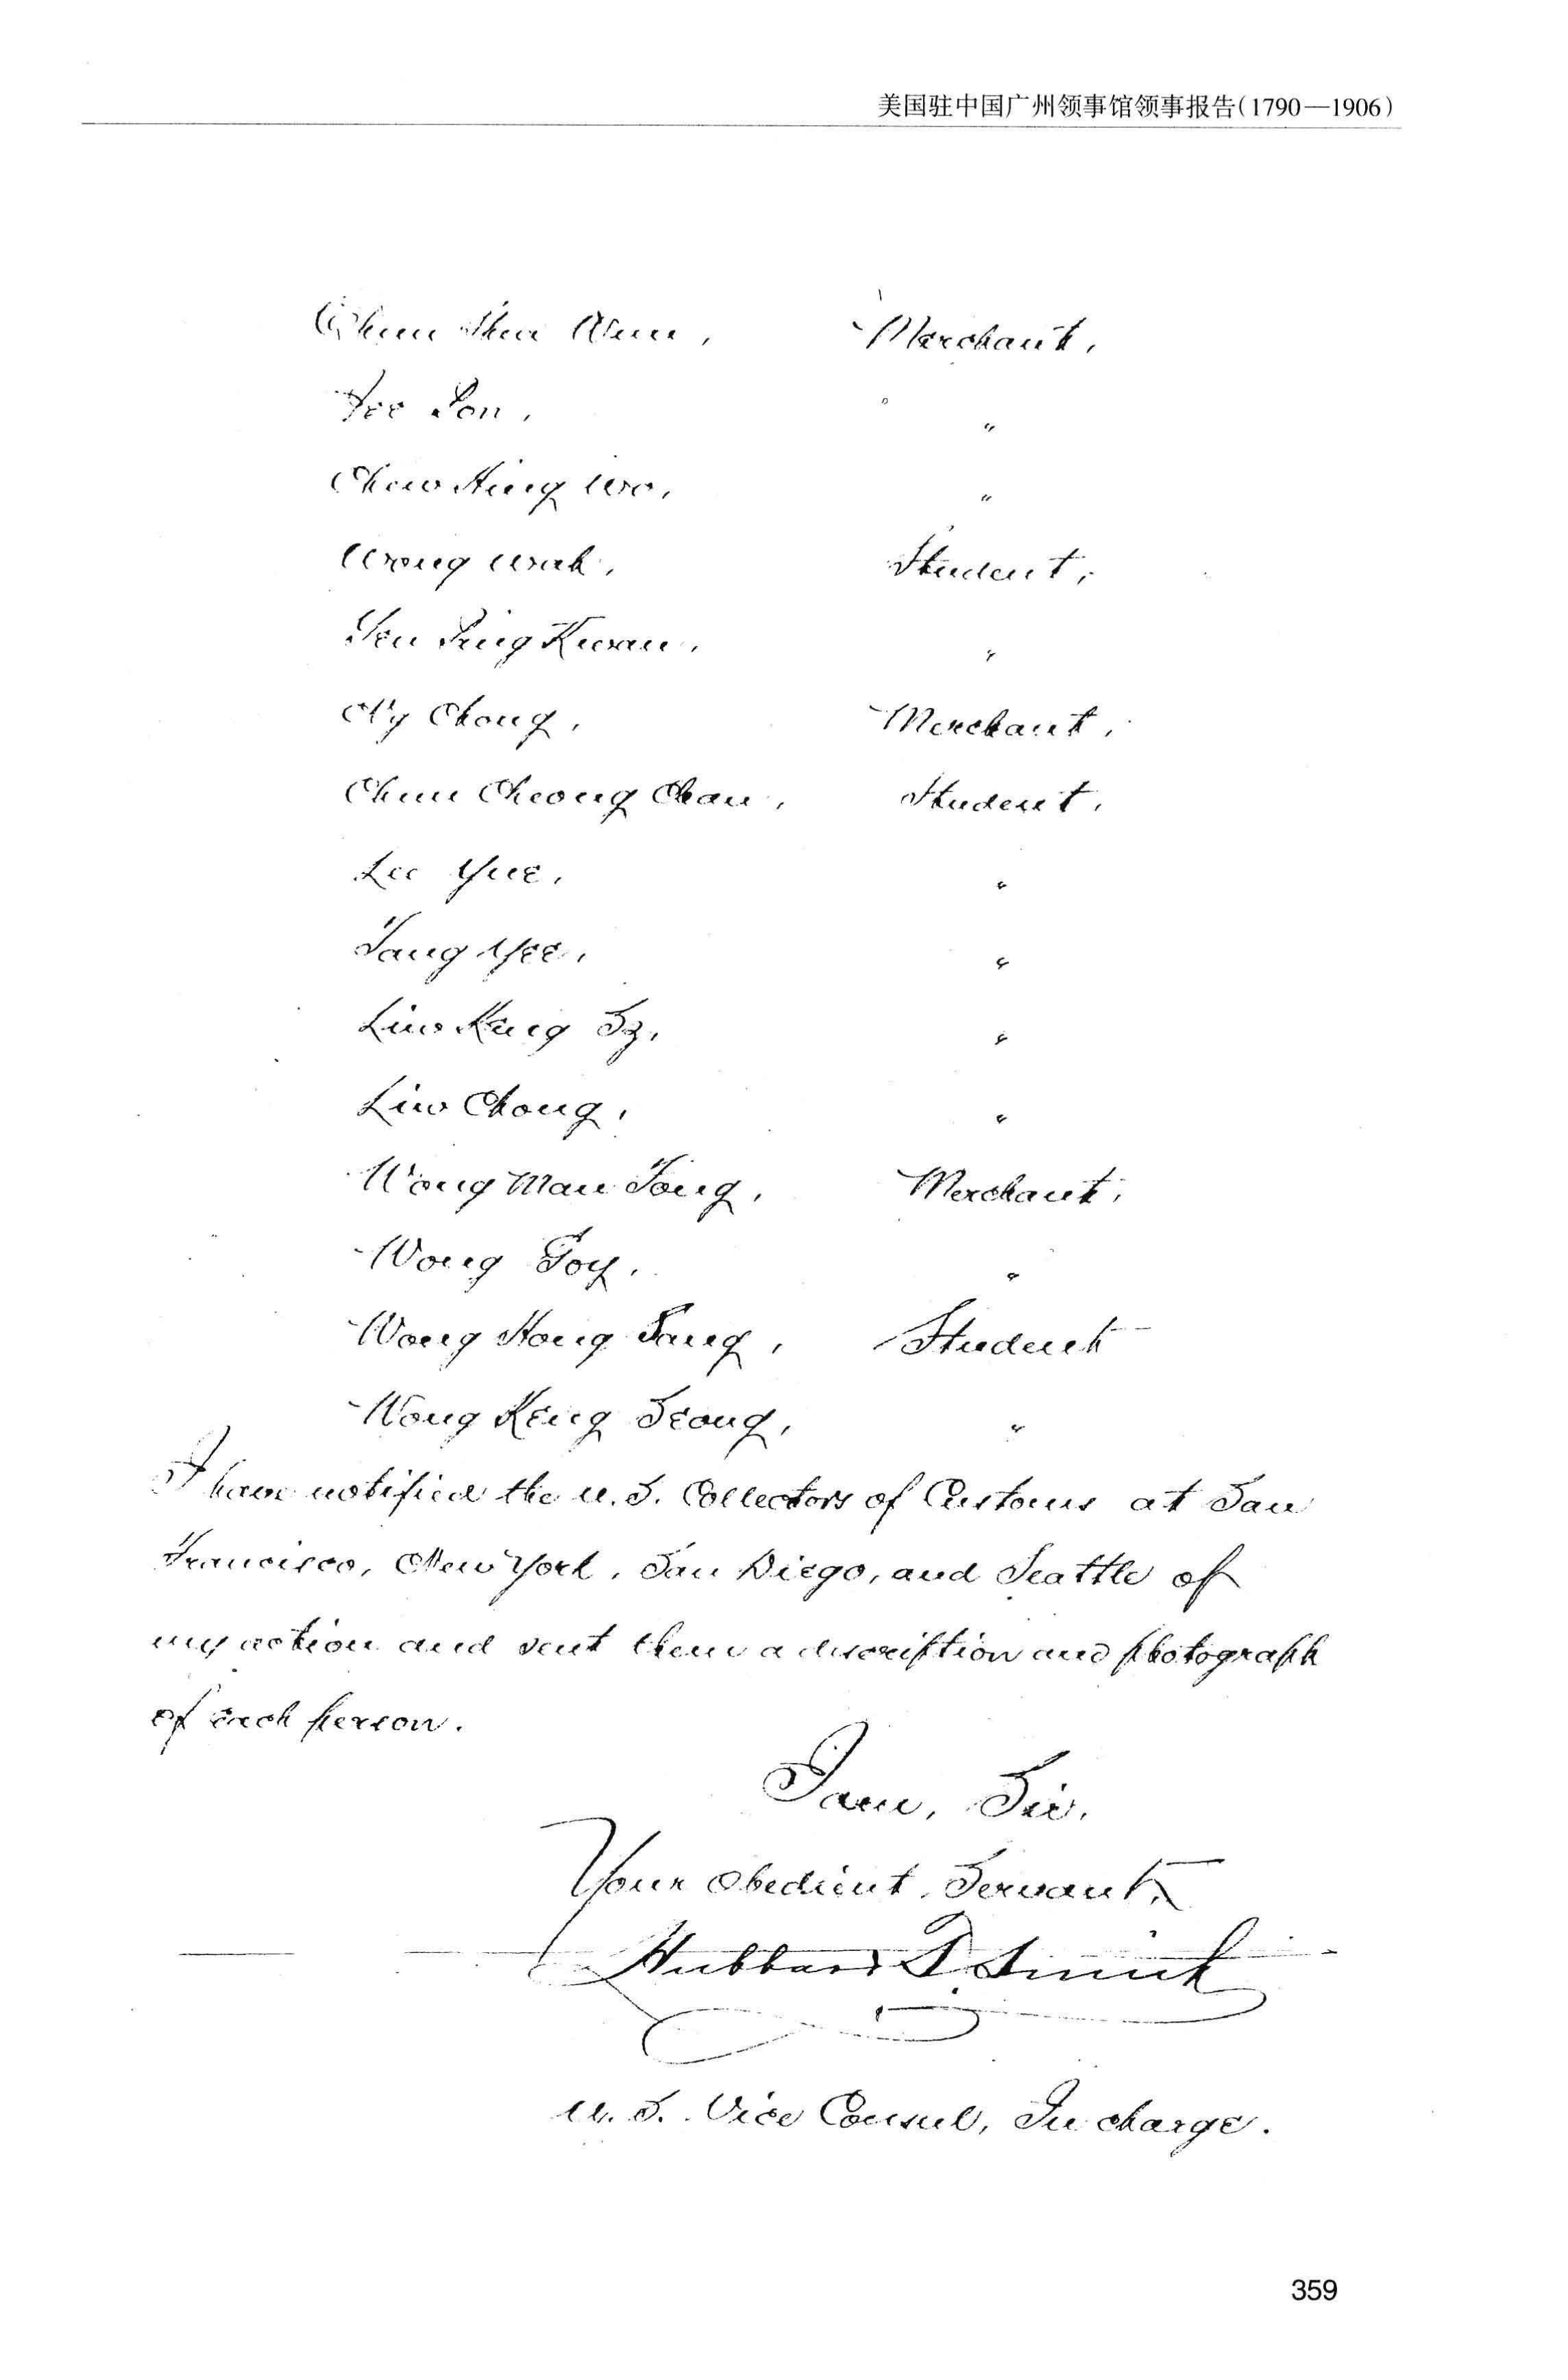 美国驻中国广州领事馆领事报告(1790—1906)
Chun Shu Merchant,
Yee Son, "
Chew Hing Wo, "
Wong Wah, Student,
Yeu Ping Kwan, "
Ny Chong, Merchant,
Chun Cheong Chan, Student,
Lee Yue, "
Tang Yee, "
Liw Keng Sz, "
Liw Chong, "
Wong Man Tong, Merchant,
Wong Toy, "
Wong Hong Sang, Student
Wong Keng Seong, "
I have notified the U.S. Collectors of Customs at San
Francisco, New York, San Diego, and Seattle of
my action and sent them a description and photograph
of each person.
I am, Sir,
Your obedient Servant,
Hubbard T. Smith
U.S. Vice Consul, In charge.
359